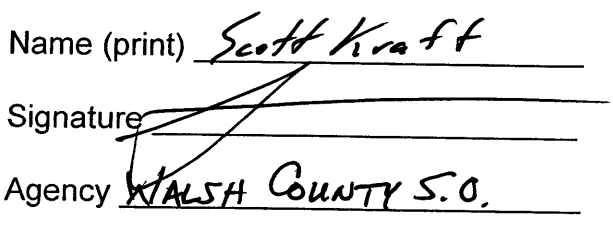 Name (print) Scott Kraft
Signature
Agency WALSH COUNTY S.O.